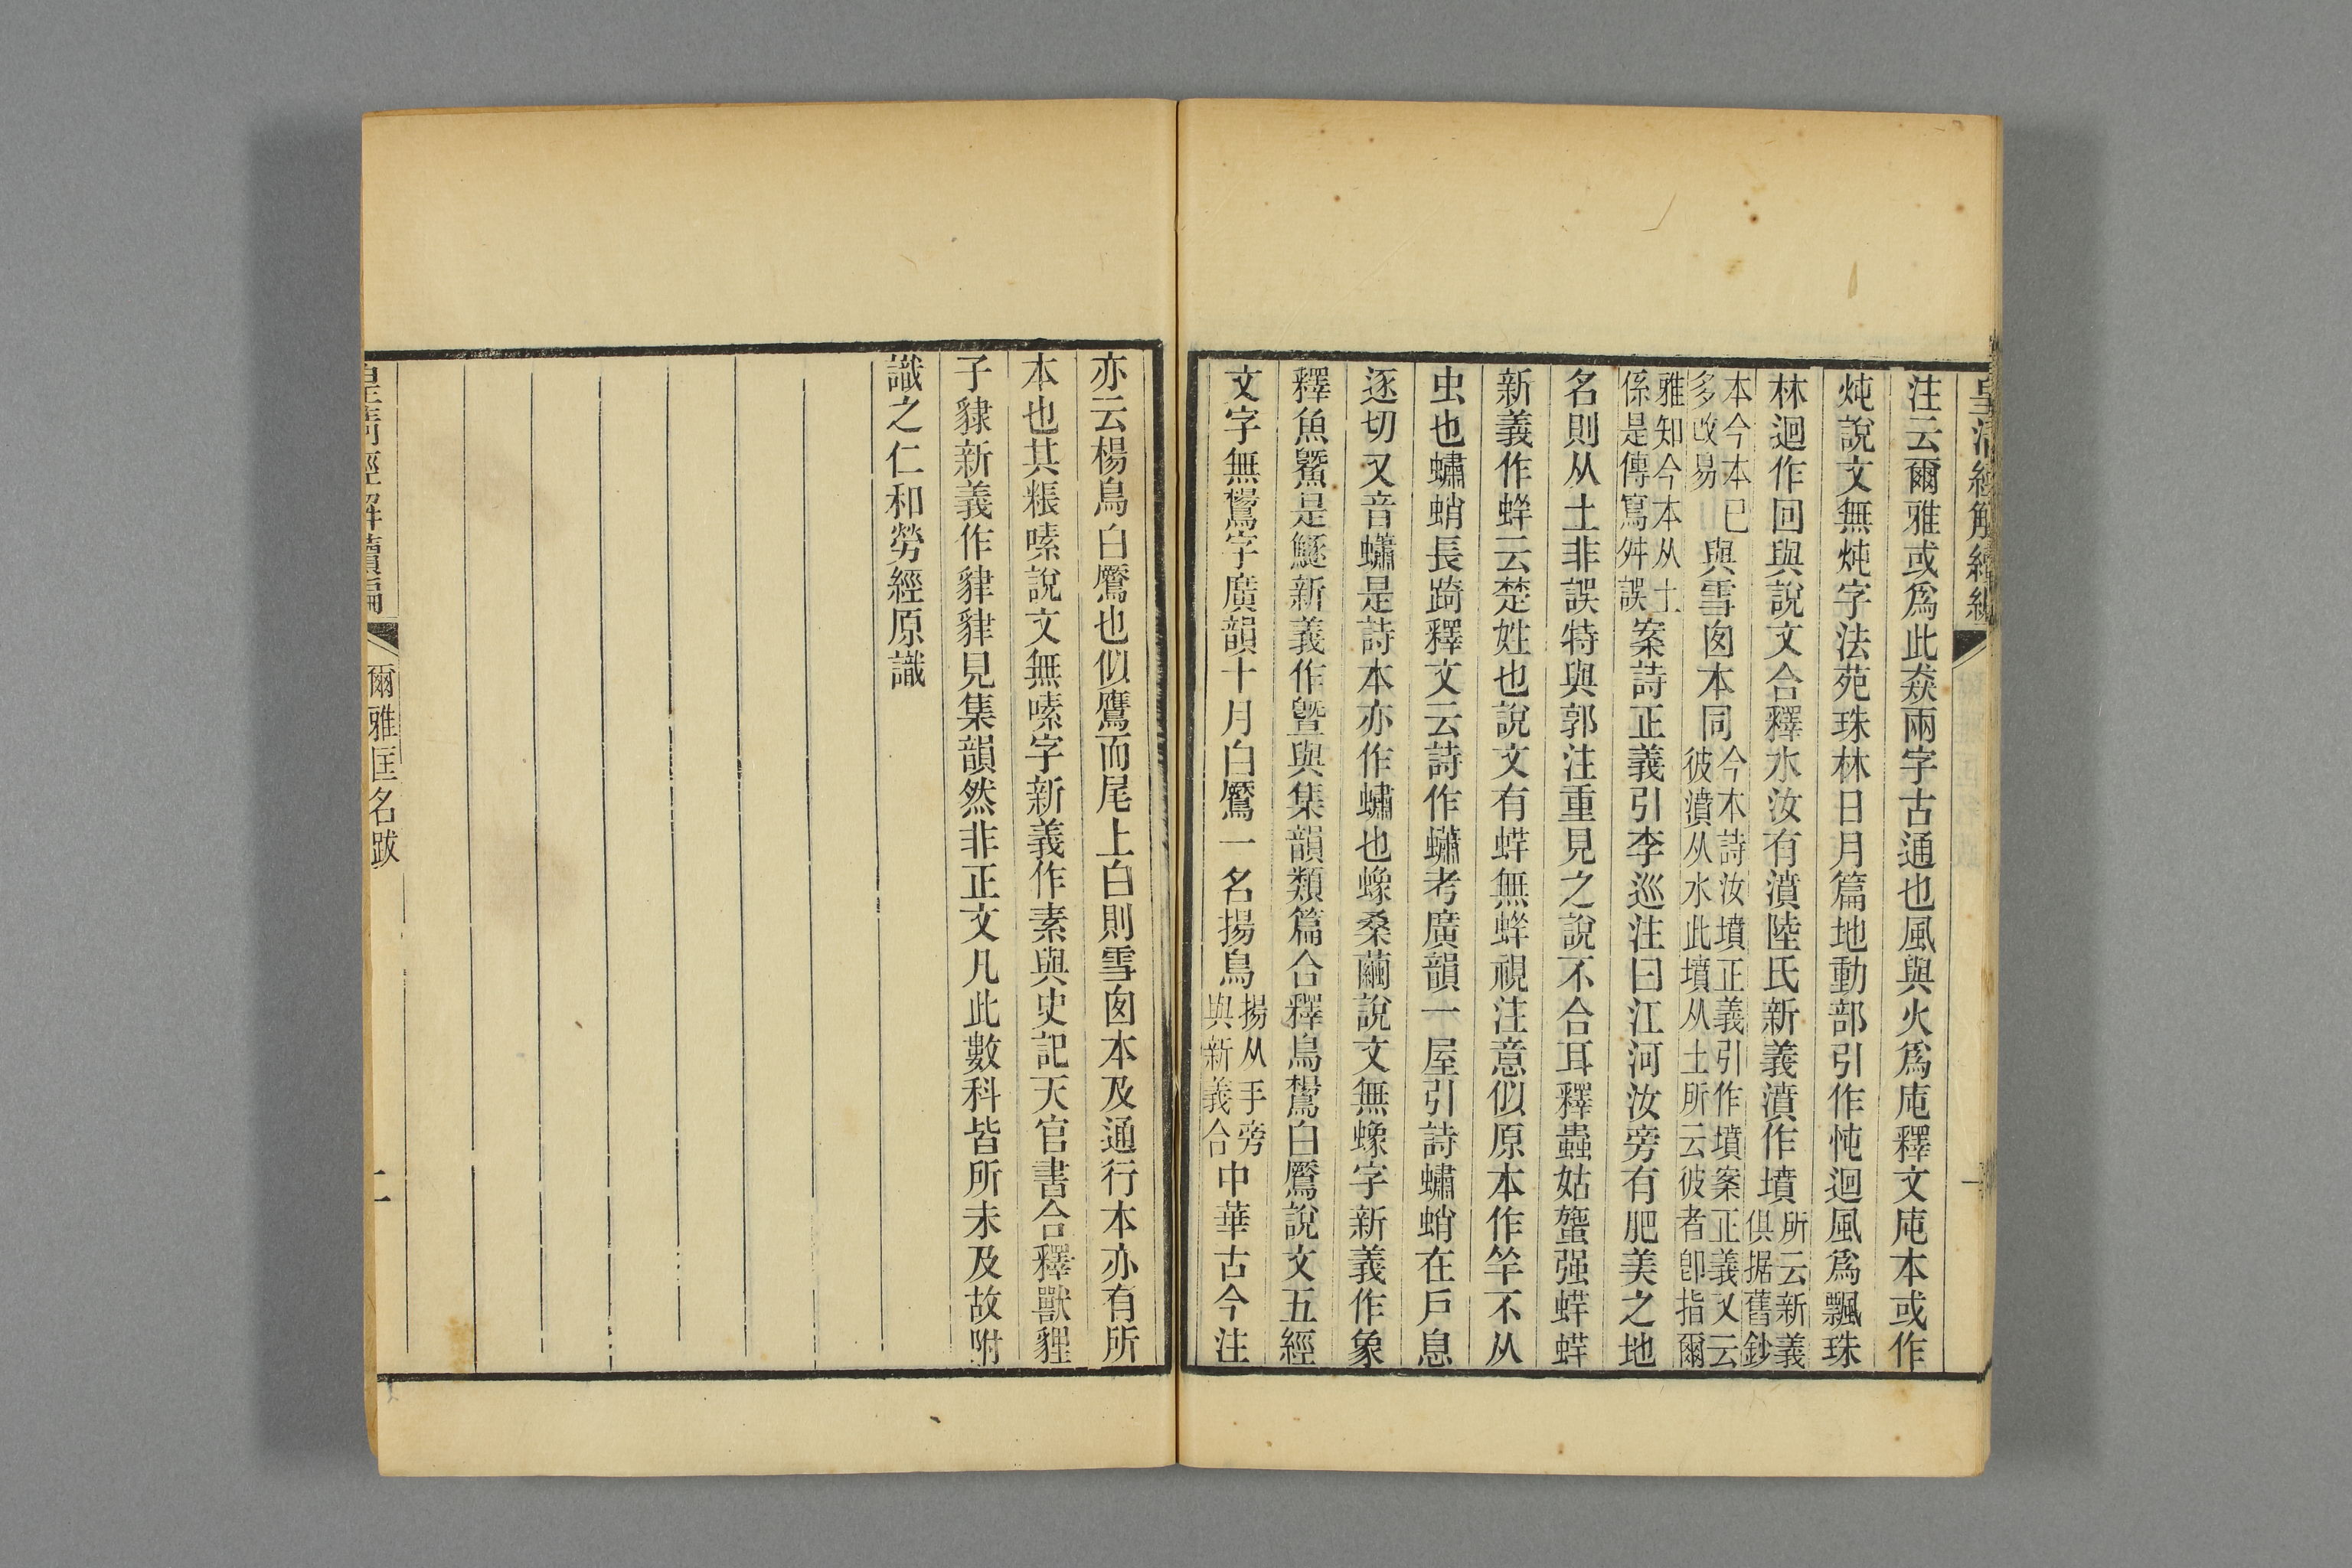 皇清經解續編
一
注云爾雅或爲此猋兩字古通也風與火爲庉釋文庉本或作
炖說文無炖字法苑珠林日月篇地動部引作忳迴風爲飄珠
林迴作回與說文合釋水汝有濆陸氏新義濆作墳所云新義俱据舊鈔
本今本已多改易與雪囪本同今本詩汝墳正義引作墳案正義又云彼濆从水此墳从土所云彼者卽指爾
雅知今本从土係是傳寫舛誤案詩正義引李巡注曰江河汝旁有肥美之地
名則从土非誤特與郭注重見之說不合耳釋蟲姑䗐强蛘蛘
新義作蛘云楚姓也說文有蛘無蛘視注意似原本作竿不从
虫也蠨蛸長踦釋文云詩作蠨考廣韻一屋引詩蠨蛸在戶息
逐切又音蠨是詩本亦作蠨也蟓桑繭說文無蟓字新義作象
釋魚鱀是鱁新義作曁與集韻類篇合釋鳥鸉白鷢說文五經
文字無鸉字廣韻十月白鷢一名揚鳥揚从手旁與新義合中華古今注
亦云楊鳥白鷢也似鷹而尾上白則雪囪本及通行本亦有所
本也其粻嗉說文無嗉字新義作素與史記天官書合釋獸貍
子貄新義作貄貄見集韻然非正文凡此數科皆所未及故附
識之仁和勞經原識
皇清經解續編
爾雅匡名跋
二